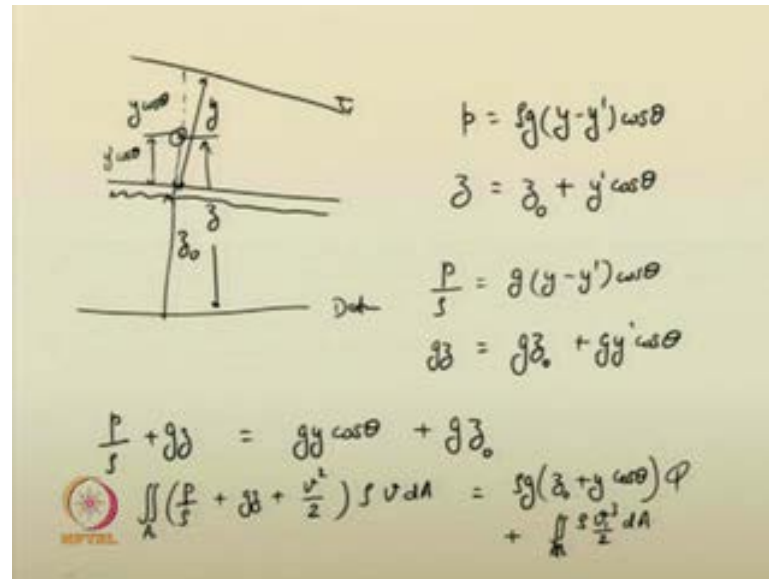 y cosθ
y
y' cosθ
z
z₀
p = ρg(y-y')cosθ
z = z₀ + y'cosθ
p/ρ = g(y-y')cosθ
gz = gz₀ + gy'cosθ
p/ρ + gz = gy cosθ + gz₀
∬_A (p/ρ + gz + v²/2) ρ v dA = ρg(z₀+y cosθ)Q
+ ∬_A ρ v³/2 dA
NPTEL